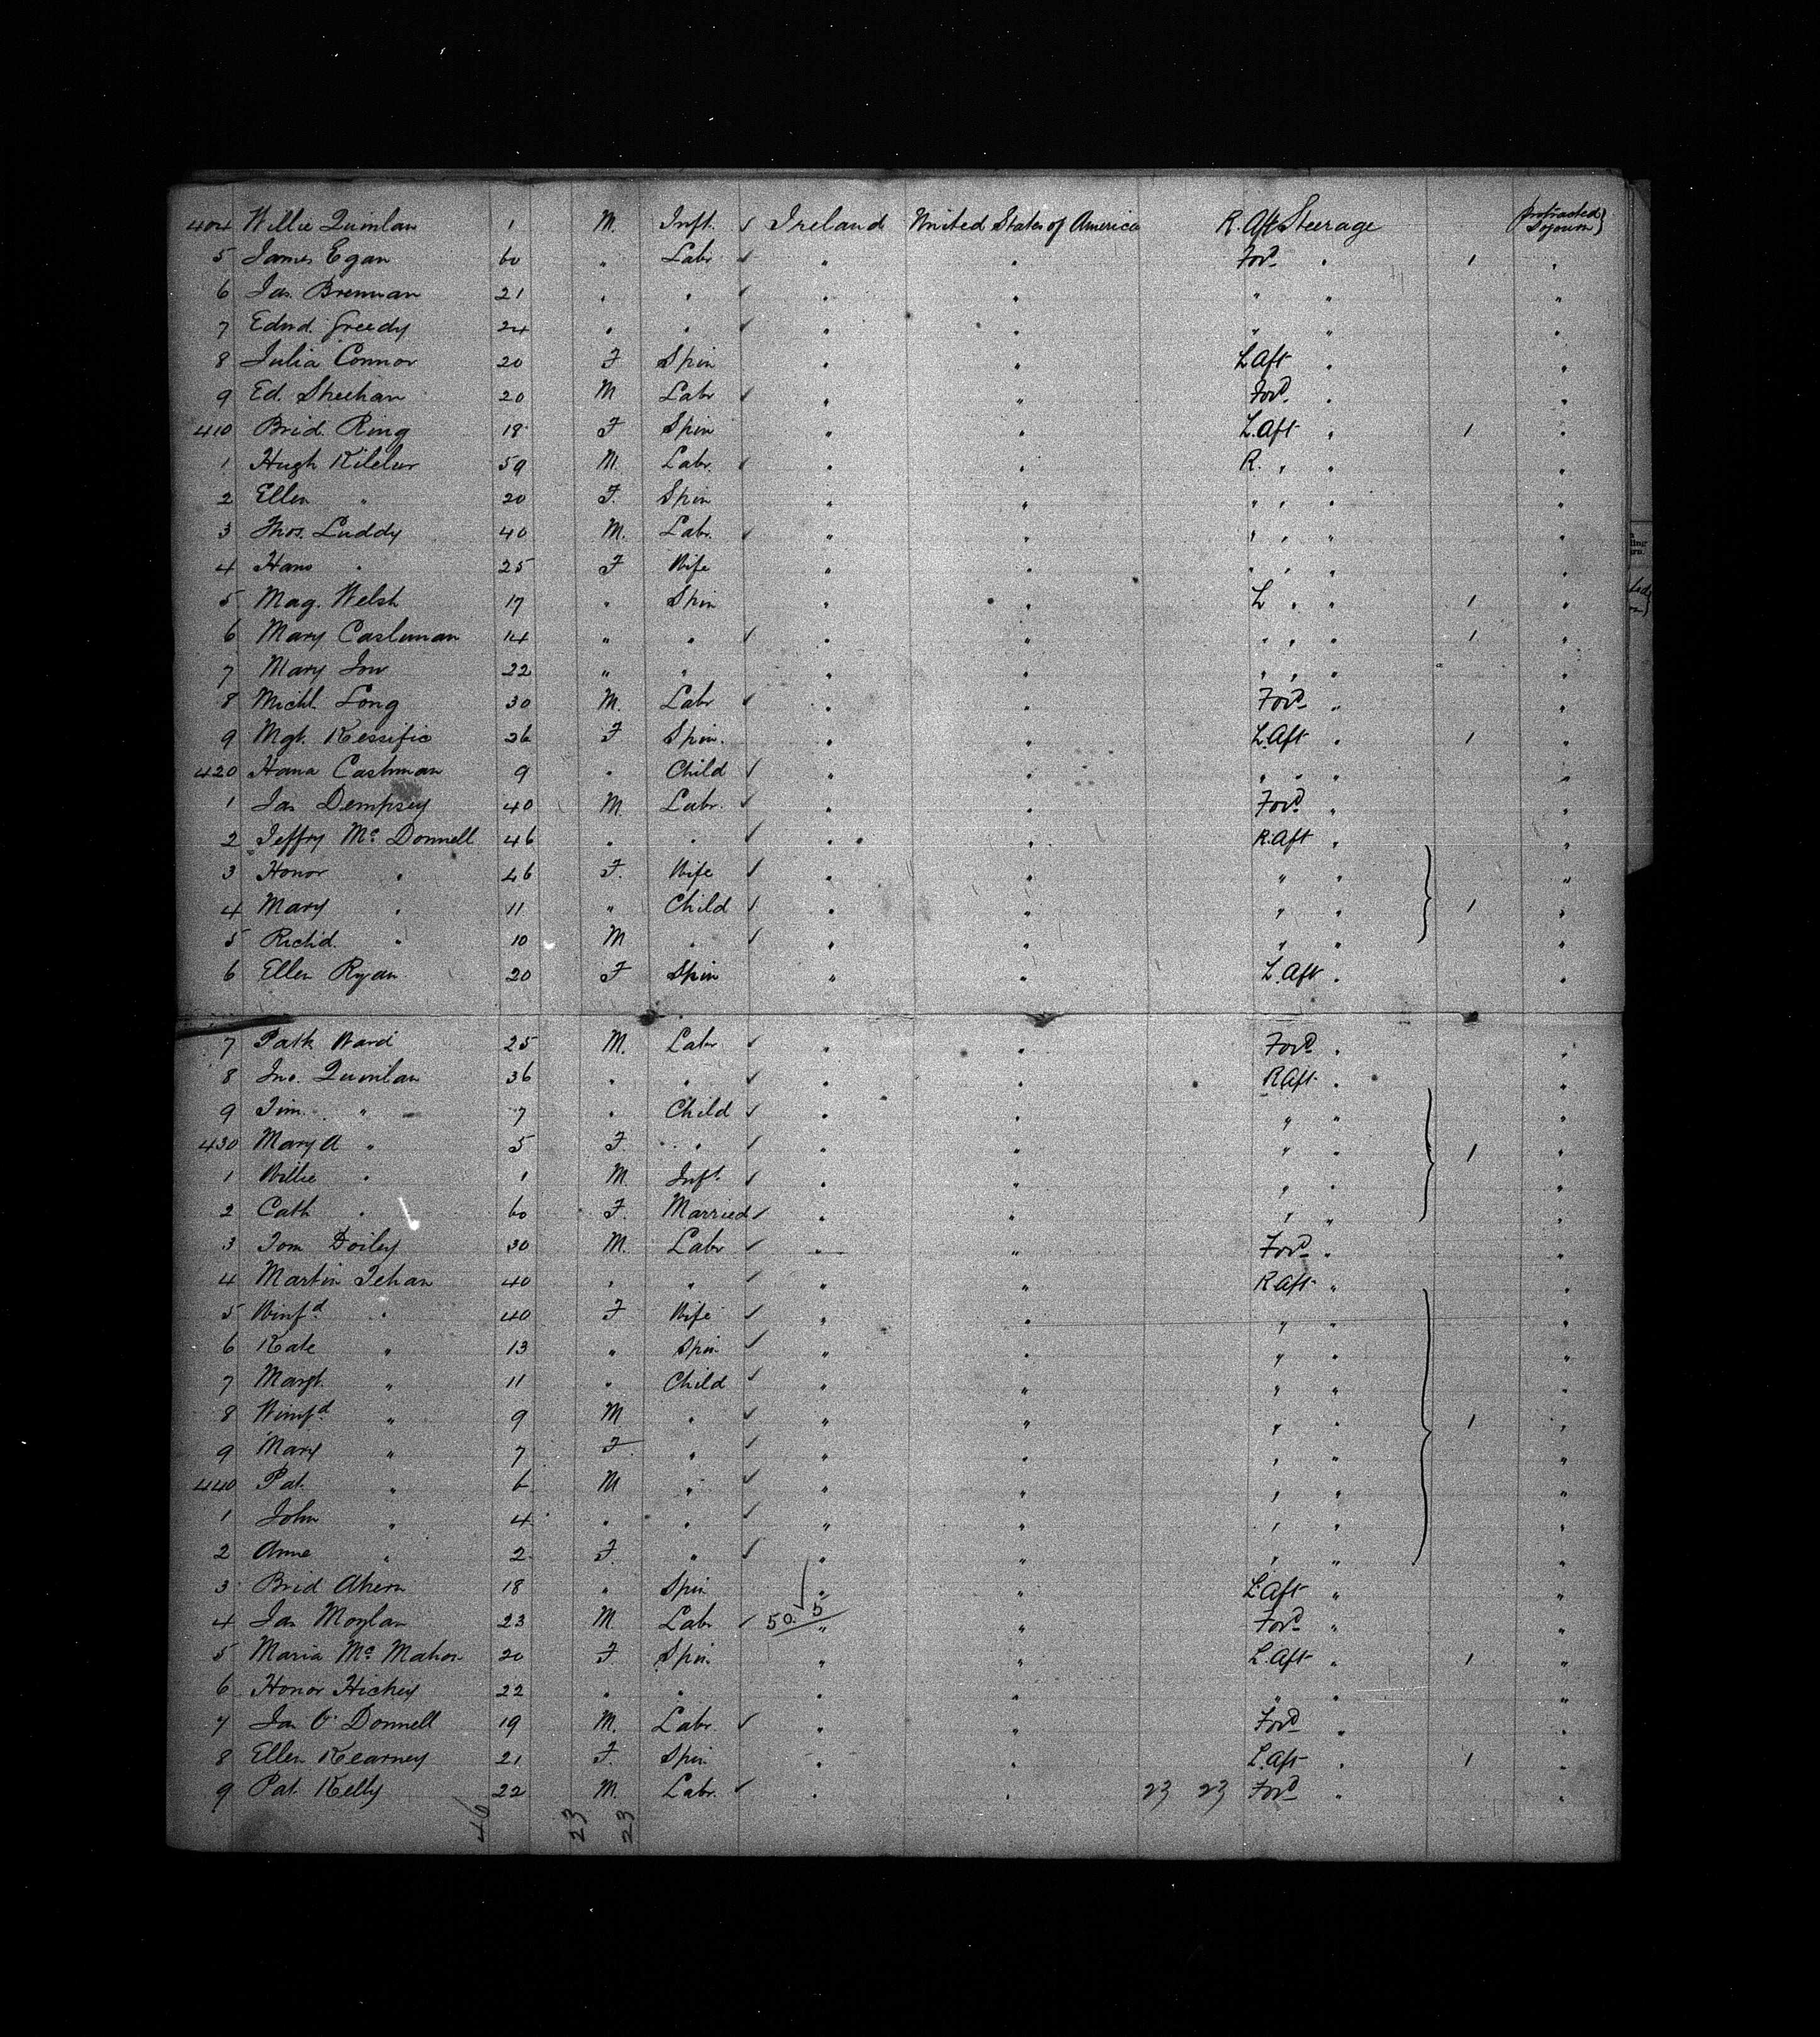 404 Willie Quinlan 1 M. Inft. ✓ Ireland United States of America R. Aft Steerage Protracted Sojourn }
5 James Egan 60 " Labr ✓ " " Ford " 1 "
6 Jas. Brennan 21 " " ✓ " " " " "
7 Edwd. Greedy 24 " " ✓ " " " " "
8 Julia Connor 20 F Spin " " L Aft " "
9 Ed. Sheehan 20 M Labr ✓ " " Ford " "
410 Brid. Ring 18 F Spin " " L. Aft " 1 "
1 Hugh 59 M. Labr. ✓ " " R. " " "
2 Ellen " 20 F. Spin " " " " " "
3 Thos. Luddy 40 M. Labr. ✓ " " " " " "
4 Hano " 25 F Wife " " " " " "
5 Mag. Welsh 17 " Spin " " L " " 1 "
6 Mary Cashman 14 " " ✓ " " " " " 1 "
7 Mary 22 " " " " " " " "
8 Michl. Long 30 M. Labr ✓ " " Ford " "
9 Mgt. 26 F Spin. " " L. Aft " 1 "
420 Hana Cashman 9 " Child ✓ " " " " " "
1 Jas Dempsey 40 M. Labr. ✓ " " Ford " "
2 Jeffry Mc Donnell 46 " " ✓ " " R. Aft " "
3 Honor " 46 F. Wife ✓ " " " " "
4 Mary " 11 " Child ✓ " " " " 1 "
5 Richd. " 10 M " ✓ " " " " "
6 Ellen Ryan 20 F Spin " " L. Aft " "
7 Patk Ward 25 M. Labr ✓ " " Ford " "
8 Jno. Quinlan 36 " " ✓ " " R Aft " "
9 Tim. " 7 " Child ✓ " " " " "
430 Mary A " 5 F. " ✓ " " " " 1 "
1 Willie " 1 M. Inft. ✓ " " " " "
2 Cath " 60 F. Married ✓ " " " " "
3 Tom Doiley 30 M. Labr ✓ " " Ford " "
4 Martin Tehan 40 " " ✓ " " R Aft " "
5 Winfd " 40 F Wife ✓ " " " " "
6 Kate " 13 " Spin ✓ " " " " "
7 Margt. " 11 " Child ✓ " " " " "
8 Winfd " 9 M " ✓ " " " " 1 "
9 Mary " 7 F " ✓ " " " " "
440 Pat. " 6 M " ✓ " " " " "
1 John " 4 " " ✓ " " " " "
2 Anne " 2 F. " ✓ " " " " "
3 Brid Ahern 18 " Spin " " L. Aft " "
4 Jas Moylan 23 M. Labr ✓ 50. 5 " " Ford " "
5 Maria Mc Mahon 20 F Spin. " " L. Aft " 1 "
6 Honor Hickey 22 " " " " " " "
7 Jas O'Donnell 19 M. Labr. ✓ " " Ford " "
8 Ellen Kearney 21 F. Spin " " L. Aft " 1 "
9 Pat. Kelly 22 M. Labr. ✓ " " 23 23 Ford " "
46 23 23